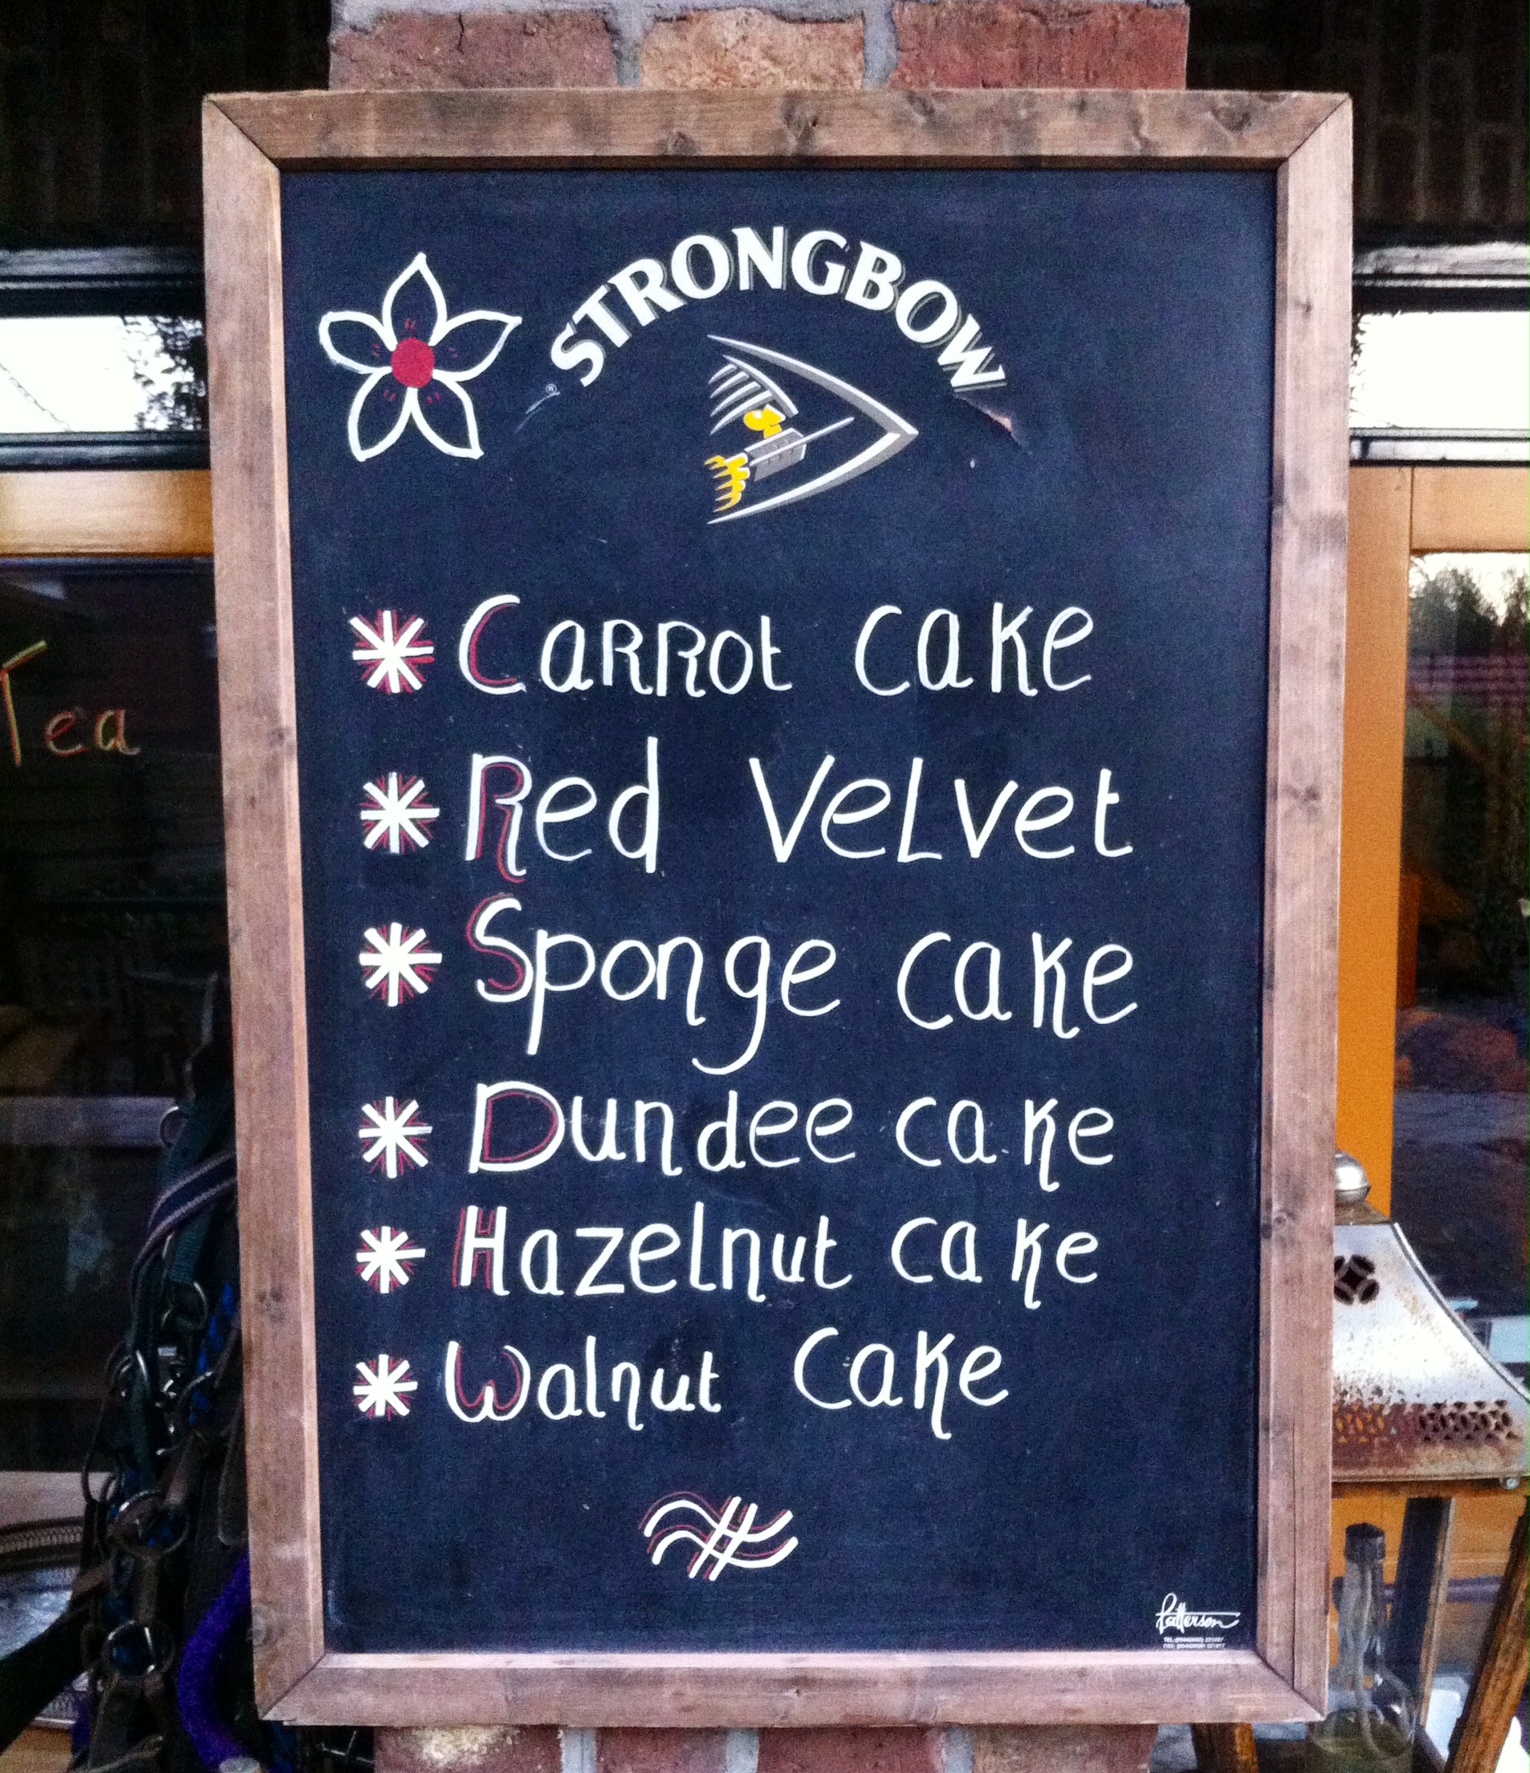 STRONGBOW
®
Carrot Cake
Red Velvet
Sponge Cake
Dundee Cake
Hazelnut Cake
Walnut Cake
Tea
Patterson